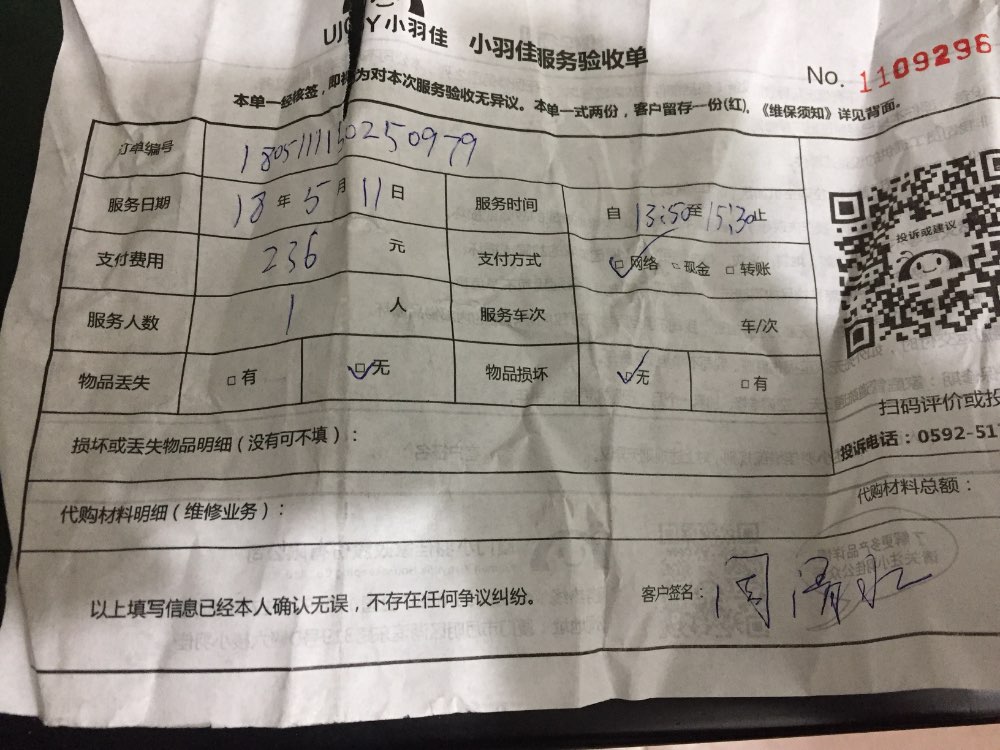 小羽佳 小羽佳服务验收单
No. 1109296
本单一经核签，即视为对本次服务验收无异议。本单一式两份，客户留存一份(红),《维保须知》详见背面。
订单编号
服务日期 18 年 5 月 11 日 服务时间 自 13:50 至 15:30 止
支付费用 236 元 支付方式 ☑ 网络 □ 现金 □ 转账
服务人数 1 人 服务车次 车/次
物品丢失 □ 有 ☑ 无 物品损坏 ☑ 无 □ 有
投诉或建议
扫码评价或投
投诉电话：0592-51
损坏或丢失物品明细（没有可不填）：
代购材料明细（维修业务）：
代购材料总额：
以上填写信息已经本人确认无误，不存在任何争议纠纷。
客户签名：